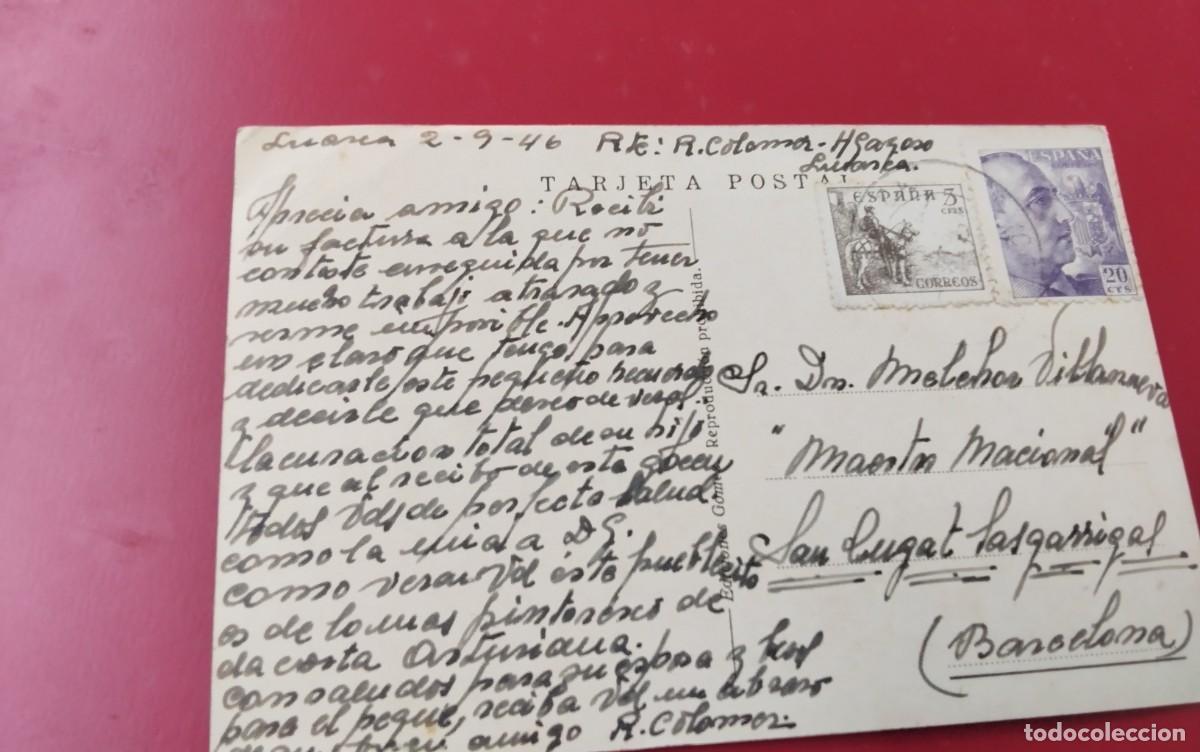 Luarca 2-9-46 Rte: R. Colomer-
Luarca.
TARJETA POSTAL
ESPAÑA 5 CTS
CORREOS
ESPAÑA
20 CTS
amigo: Recibi
su factura a la que no
conteste enseguida por tener
mucho trabajo atrasado y
serme imposible. Aprovecho
un claro que tengo para
dedicarle este pequeño recuerdo
y decirle que deseo de veras
la curacion total de su hijo
y que al recibo de esta gocen
todos Vds de perfecta salud,
como la mia a D. G.
como vera Vd este pueblecito
es de lo mas pintoresco de
la costa Asturiana.
con saludos para su esposa y
para el peque, reciba Vd un abrazo
de su amigo R. Colomer.
Ediciones Reproducción prohibida.
Sr. Dn. Melchor Villanueva
"Maestro Nacional"
San Cugat Sasgarrigas
(Barcelona)
todocoleccion